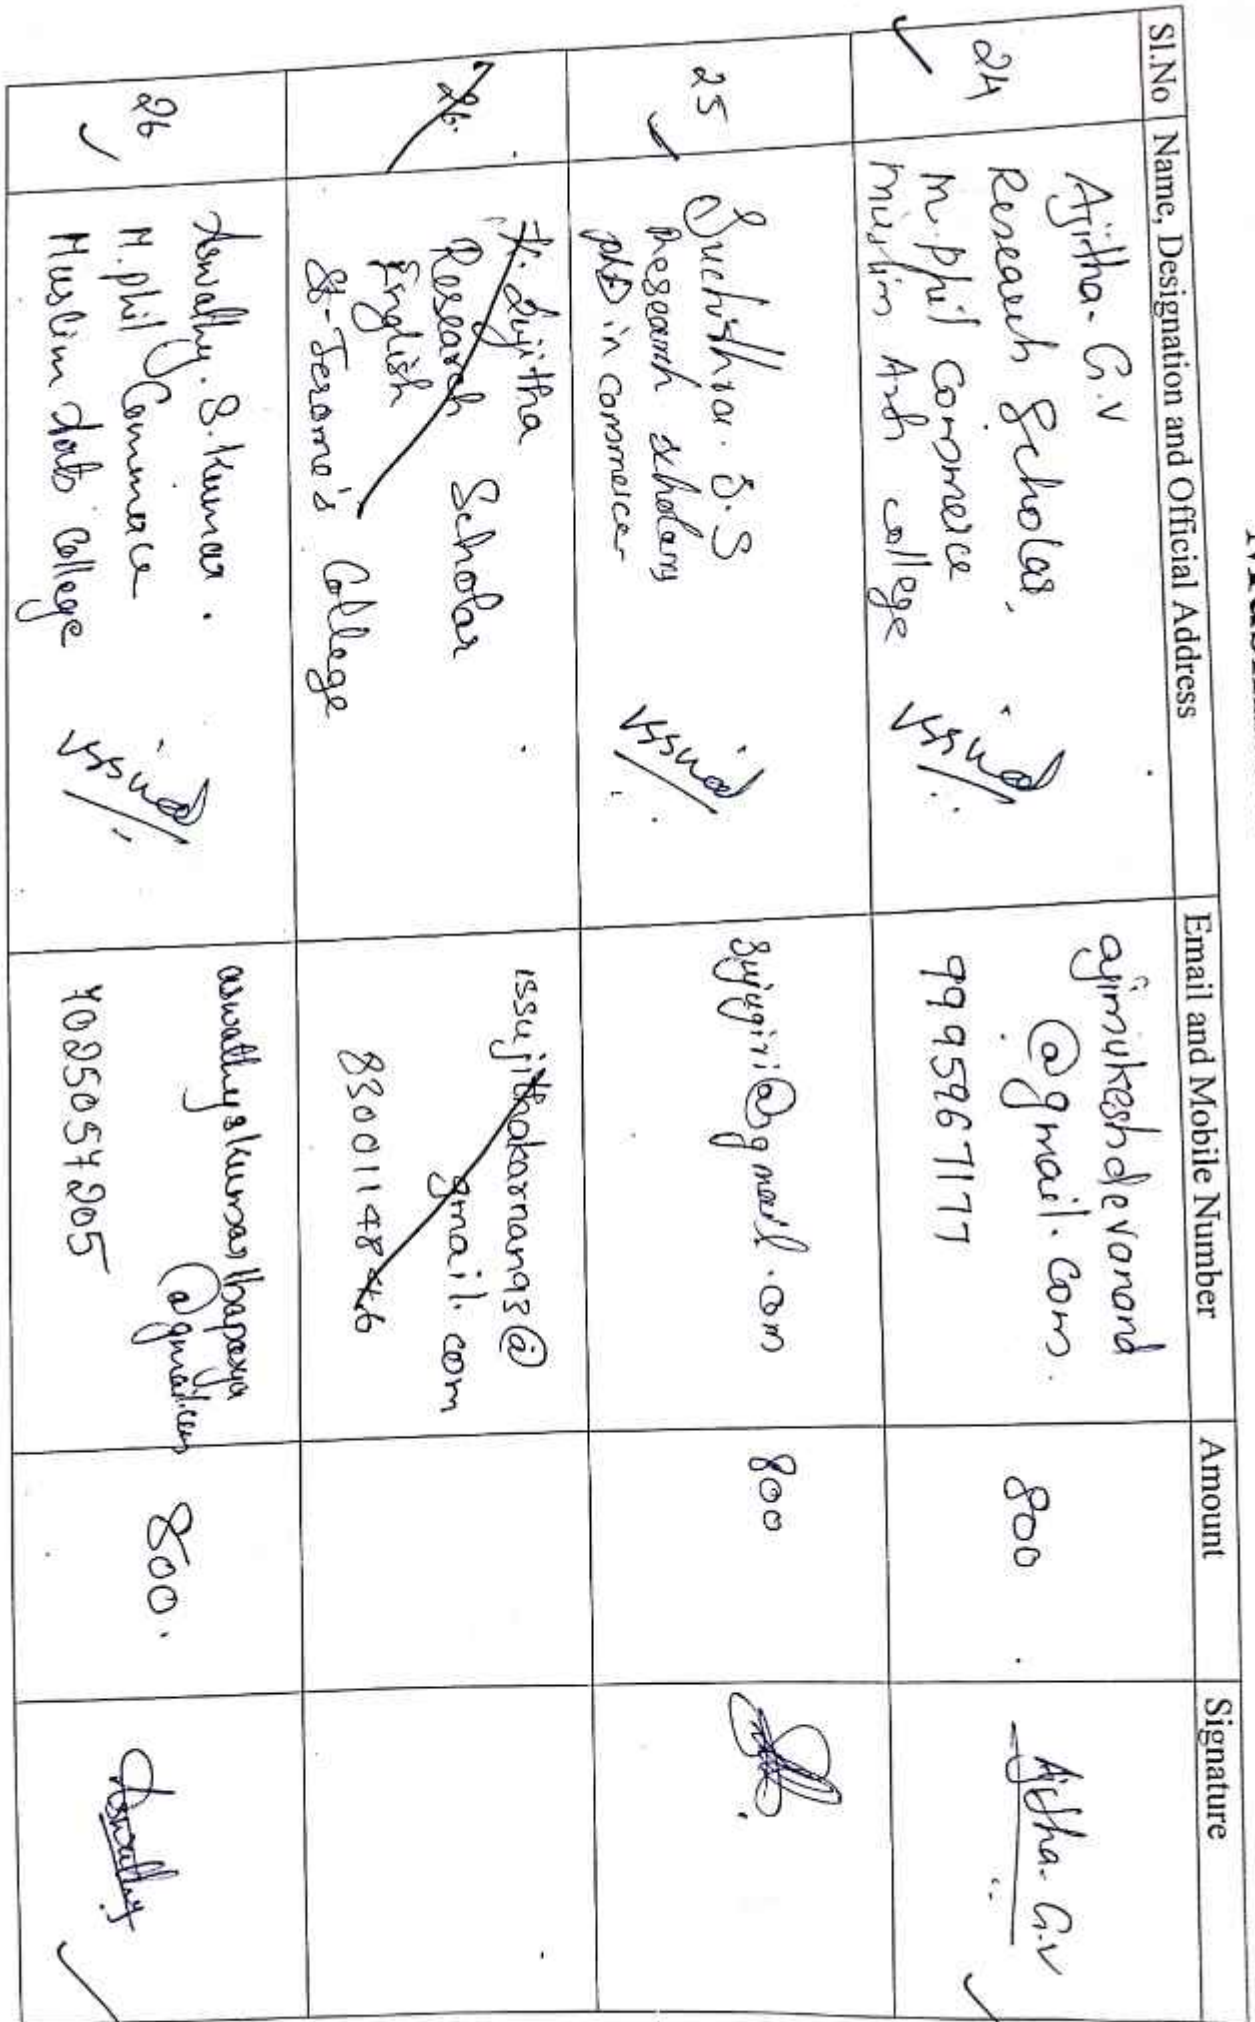 Sl.No Name, Designation and Official Address Email and Mobile Number Amount Signature
24
Ajitha. G.V
Research Scholar,
M.phil Commerce
Muslim Arts college
issued
ajimukeshdevanand
@gmail.com.
9995967177
800
Ajitha. G.V
25
Suchithra. S.S
Research scholar
phD in commerce
issued
sujugiri@gmail.com
800
26.
Sujitha
Research Scholar
English
St. Jerome's College
issujithakarnan93@
gmail.com
26
Aswathy. S. Kumar.
M.phil Commerce
Muslim Arts College
issued
@gmail.com
7025057205
800.
Aswathy